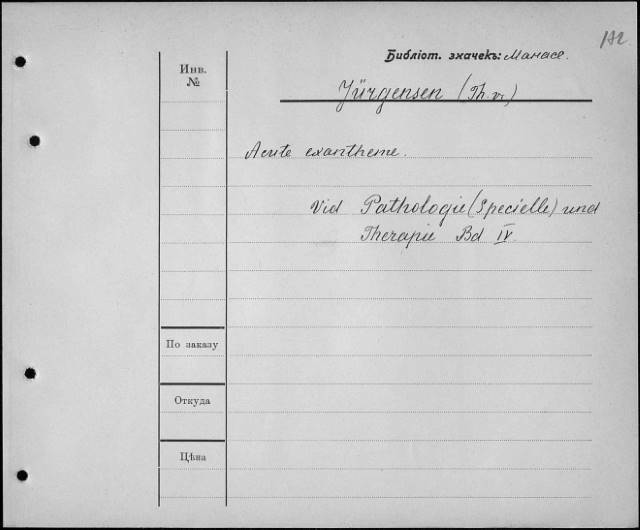 112
Библіот. значекъ: Манасе.
Инв.
№
Jürgensen (Th. v.)
Acute exantheme.
Vid Pathologie (Specielle) und
Therapie Bd IV.
По заказу
Откуда
Цѣна